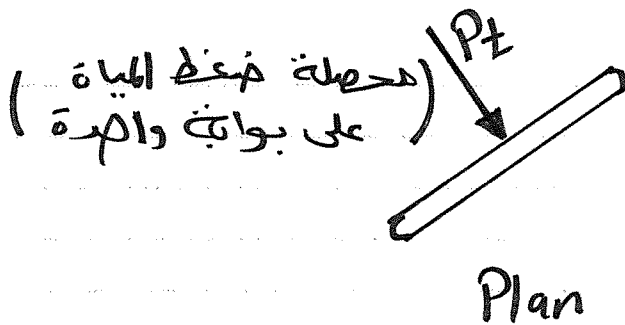 (محصلة ضغط المياة
على بوابة واحدة)
Pt
Plan